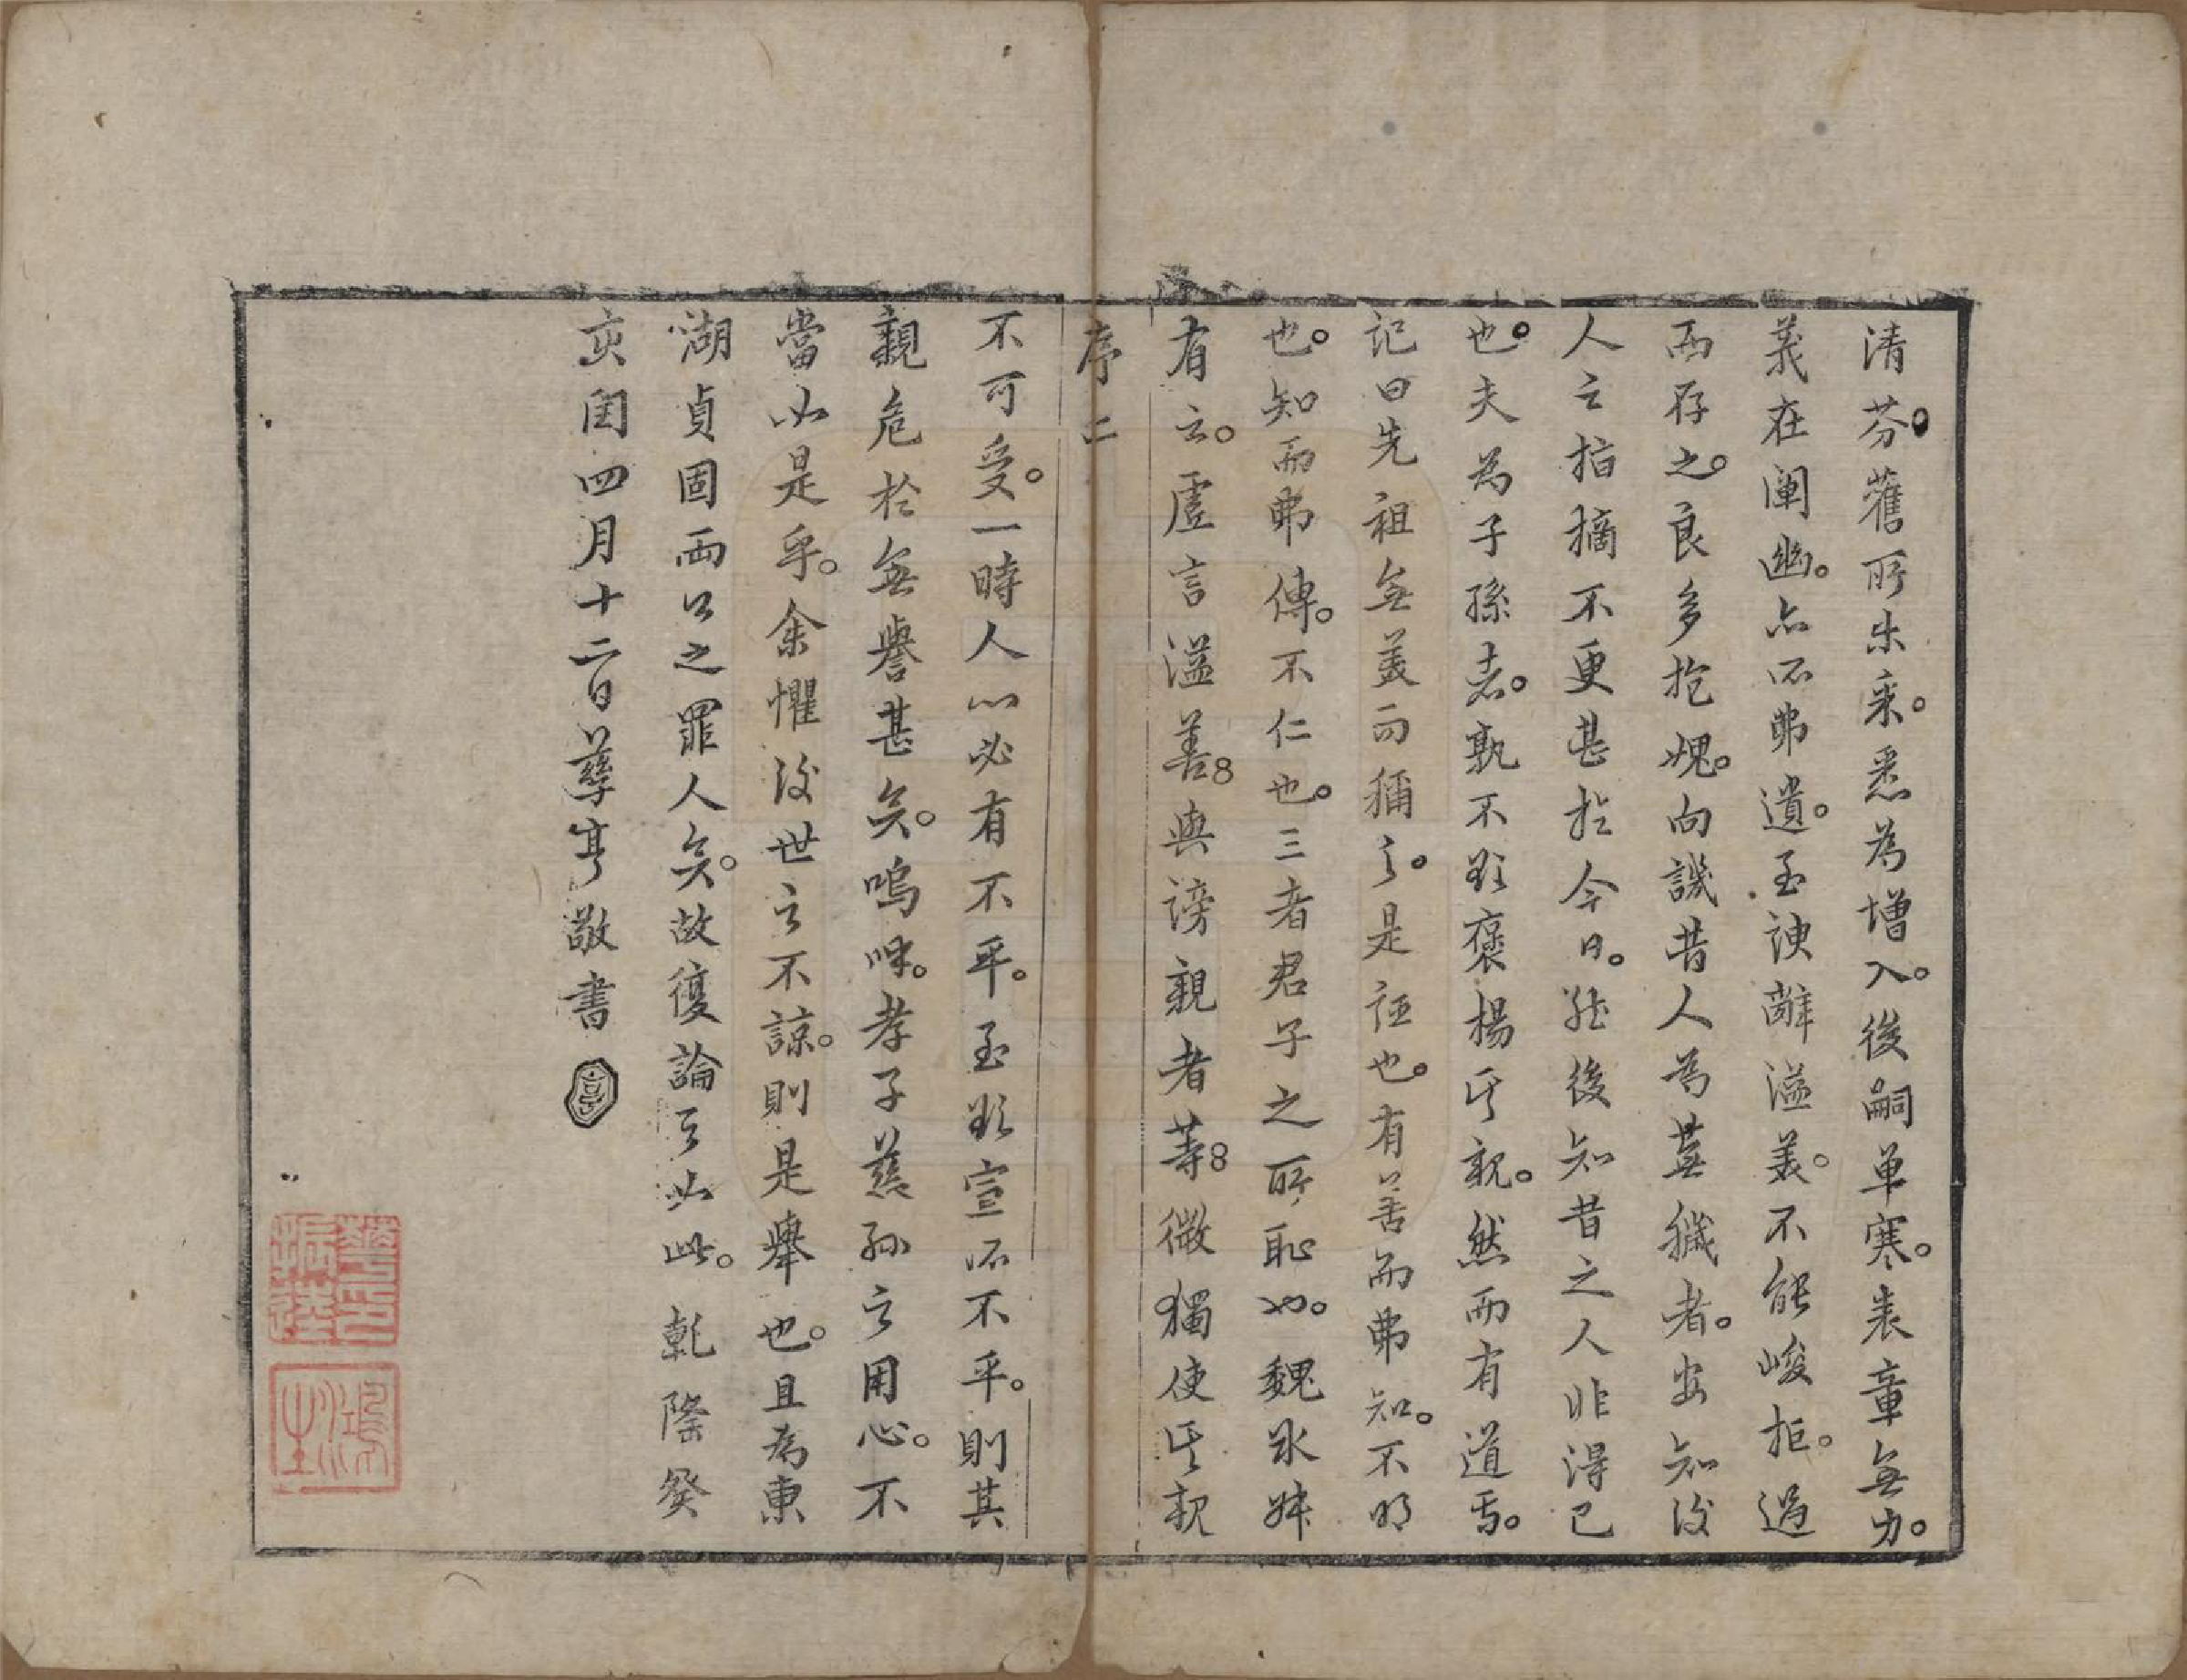 清芬舊所未采。悉為增入。後嗣单寒。表章無力。
義在闡幽。亦不弗遺。至諛辭溢美。不能峻拒。過
而存之。良多抱愧。向譏昔人為蕪穢者。安知後
人之指摘不更甚於今日。然後知昔之人非得已
也。夫為子孫者。孰不欲褒揚其親。然而有道焉。
記曰先祖無美而稱之。是誣也。有善而弗知。不明
也。知而弗傳。不仁也。三者君子之所恥也。魏叔
有云。虛言溢善。與謗親者等。微獨使其親
序 二
不可受。一時人心必有不平。至欲宣不平。則其
親危於無譽甚矣。嗚呼。孝子慈孫之用心。不
當如是乎。余懼後世之不諒。則是舉也。且為東
湖貞固兩公之罪人矣。故復論之如此。乾隆癸
亥閏四月十二日孳亨敬書